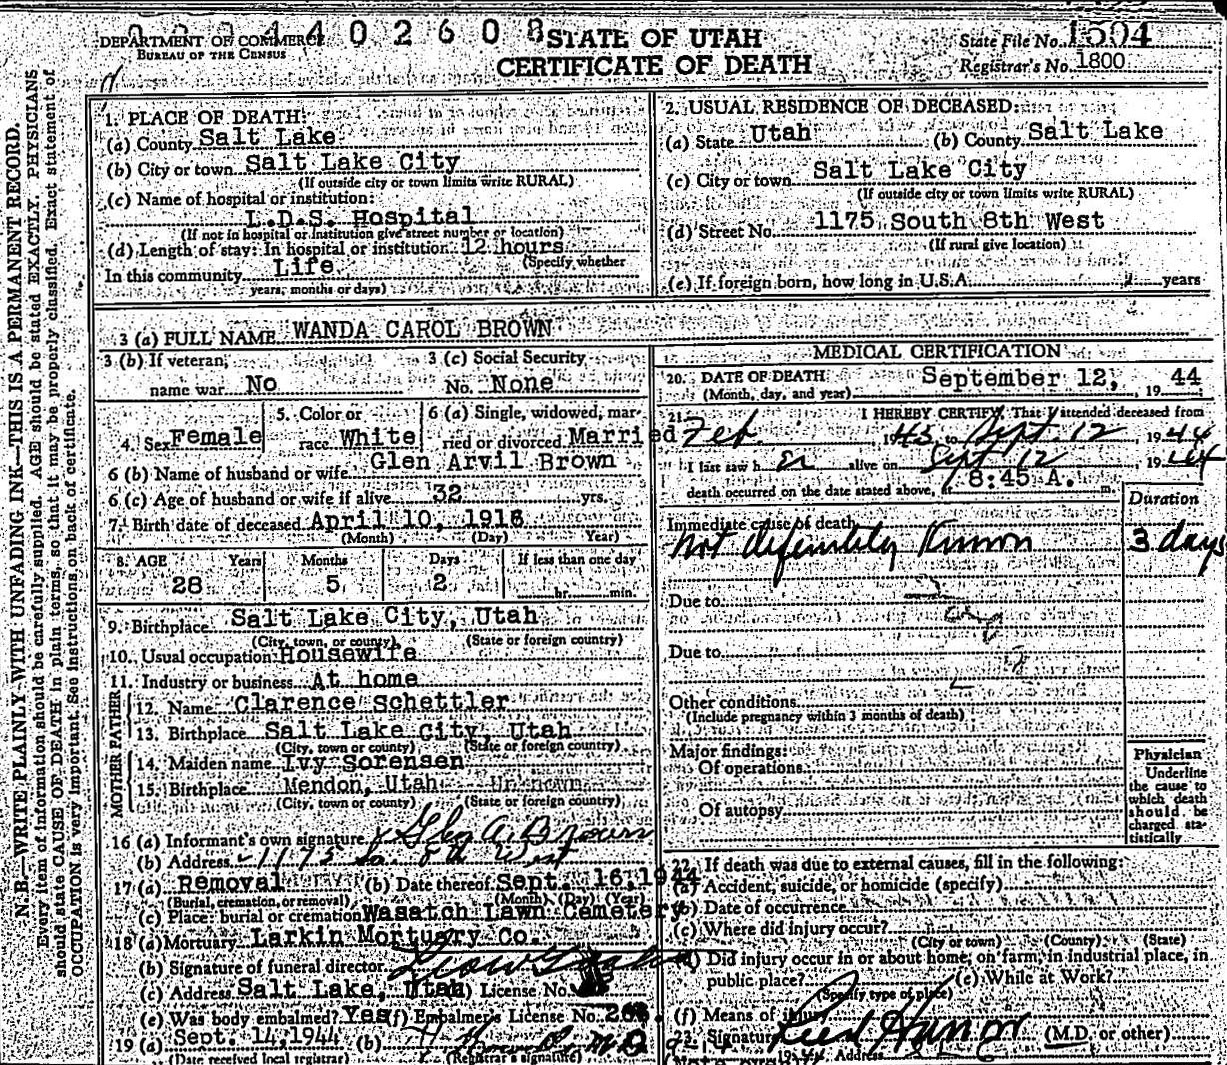 0 4 4 0 2 6 0 8
DEPARTMENT OF COMMERCE
BUREAU OF THE CENSUS
STATE OF UTAH
CERTIFICATE OF DEATH
State File No. 1504
Registrar's No. 1800
N. B.—WRITE PLAINLY WITH UNFADING INK—THIS IS A PERMANENT RECORD.
Every item of information should be carefully supplied. AGE should be stated EXACTLY. PHYSICIANS
should state CAUSE OF DEATH in plain terms, so that it may be properly classified. Exact statement of
OCCUPATION is very important. See instructions on back of certificate.
1. PLACE OF DEATH:
(a) County Salt Lake
(b) City or town Salt Lake City
(If outside city or town limits write RURAL)
(c) Name of hospital or institution:
L.D.S. Hospital
(If not in hospital or institution give street number or location)
(d) Length of stay: In hospital or institution 12 hours
(Specify whether
In this community Life
years, months or days)
2. USUAL RESIDENCE OF DECEASED:
(a) State Utah (b) County Salt Lake
(c) City or town Salt Lake City
(If outside city or town limits write RURAL)
(d) Street No. 1175 South 8th West
(If rural give location)
(e) If foreign born, how long in U.S.A. years
3 (a) FULL NAME WANDA CAROL BROWN
3 (b) If veteran, name war No
3 (c) Social Security No. None
4. Sex Female
5. Color or race White
6 (a) Single, widowed, married or divorced Married
6 (b) Name of husband or wife Glen Arvil Brown
6 (c) Age of husband or wife if alive 32 yrs.
7. Birth date of deceased April 10, 1916
(Month) (Day) Year)
8. AGE Years Months Days If less than one day
28 5 2 hr. min.
9. Birthplace Salt Lake City, Utah
(City, town, or county) (State or foreign country)
10. Usual occupation Housewife
11. Industry or business At home
FATHER
12. Name Clarence Schettler
13. Birthplace Salt Lake City, Utah
(City, town or county) (State or foreign country)
MOTHER
14. Maiden name Ivy Sorensen
15. Birthplace Mendon, Utah Unknown
(City, town or county) (State or foreign country)
16 (a) Informant's own signature x Glen A. Brown
(b) Address 1175 So. 8th West
17 (a) Removal (b) Date thereof Sept. 16, 1944
(Burial, cremation, or removal) (Month) (Day) (Year)
(c) Place: burial or cremation Wasatch Lawn Cemetery
18 (a) Mortuary Larkin Mortuary Co.
(b) Signature of funeral director
(c) Address Salt Lake, Utah License No.
(e) Was body embalmed? Yes (f) Embalmer's License No.
19 (a) Sept. 14, 1944 (b) M.D.
(Date received local registrar) (Registrar's signature)
MEDICAL CERTIFICATION
20. DATE OF DEATH September 12, 19 44
(Month, day, and year)
21. I HEREBY CERTIFY, That I attended deceased from
Feb. 1943, to Sept. 12, 1944
I last saw her alive on Sept 12 1944
death occurred on the date stated above, at 8:45 A. m
Duration
Immediate cause of death
not definitely known 3 days
Due to
Due to
Other conditions
(Include pregnancy within 3 months of death)
Major findings:
Of operations
Of autopsy
Physician
Underline
the cause to
which death
should be
charged sta-
tistically
22. If death was due to external causes, fill in the following:
(a) Accident, suicide, or homicide (specify)
(b) Date of occurrence
(c) Where did injury occur?
(City or town) (County) (State)
(d) Did injury occur in or about home, on farm, in industrial place, in
public place? (e) While at Work?
(Specify type of place)
(f) Means of injury
23. Signature (M.D. or other)
Address